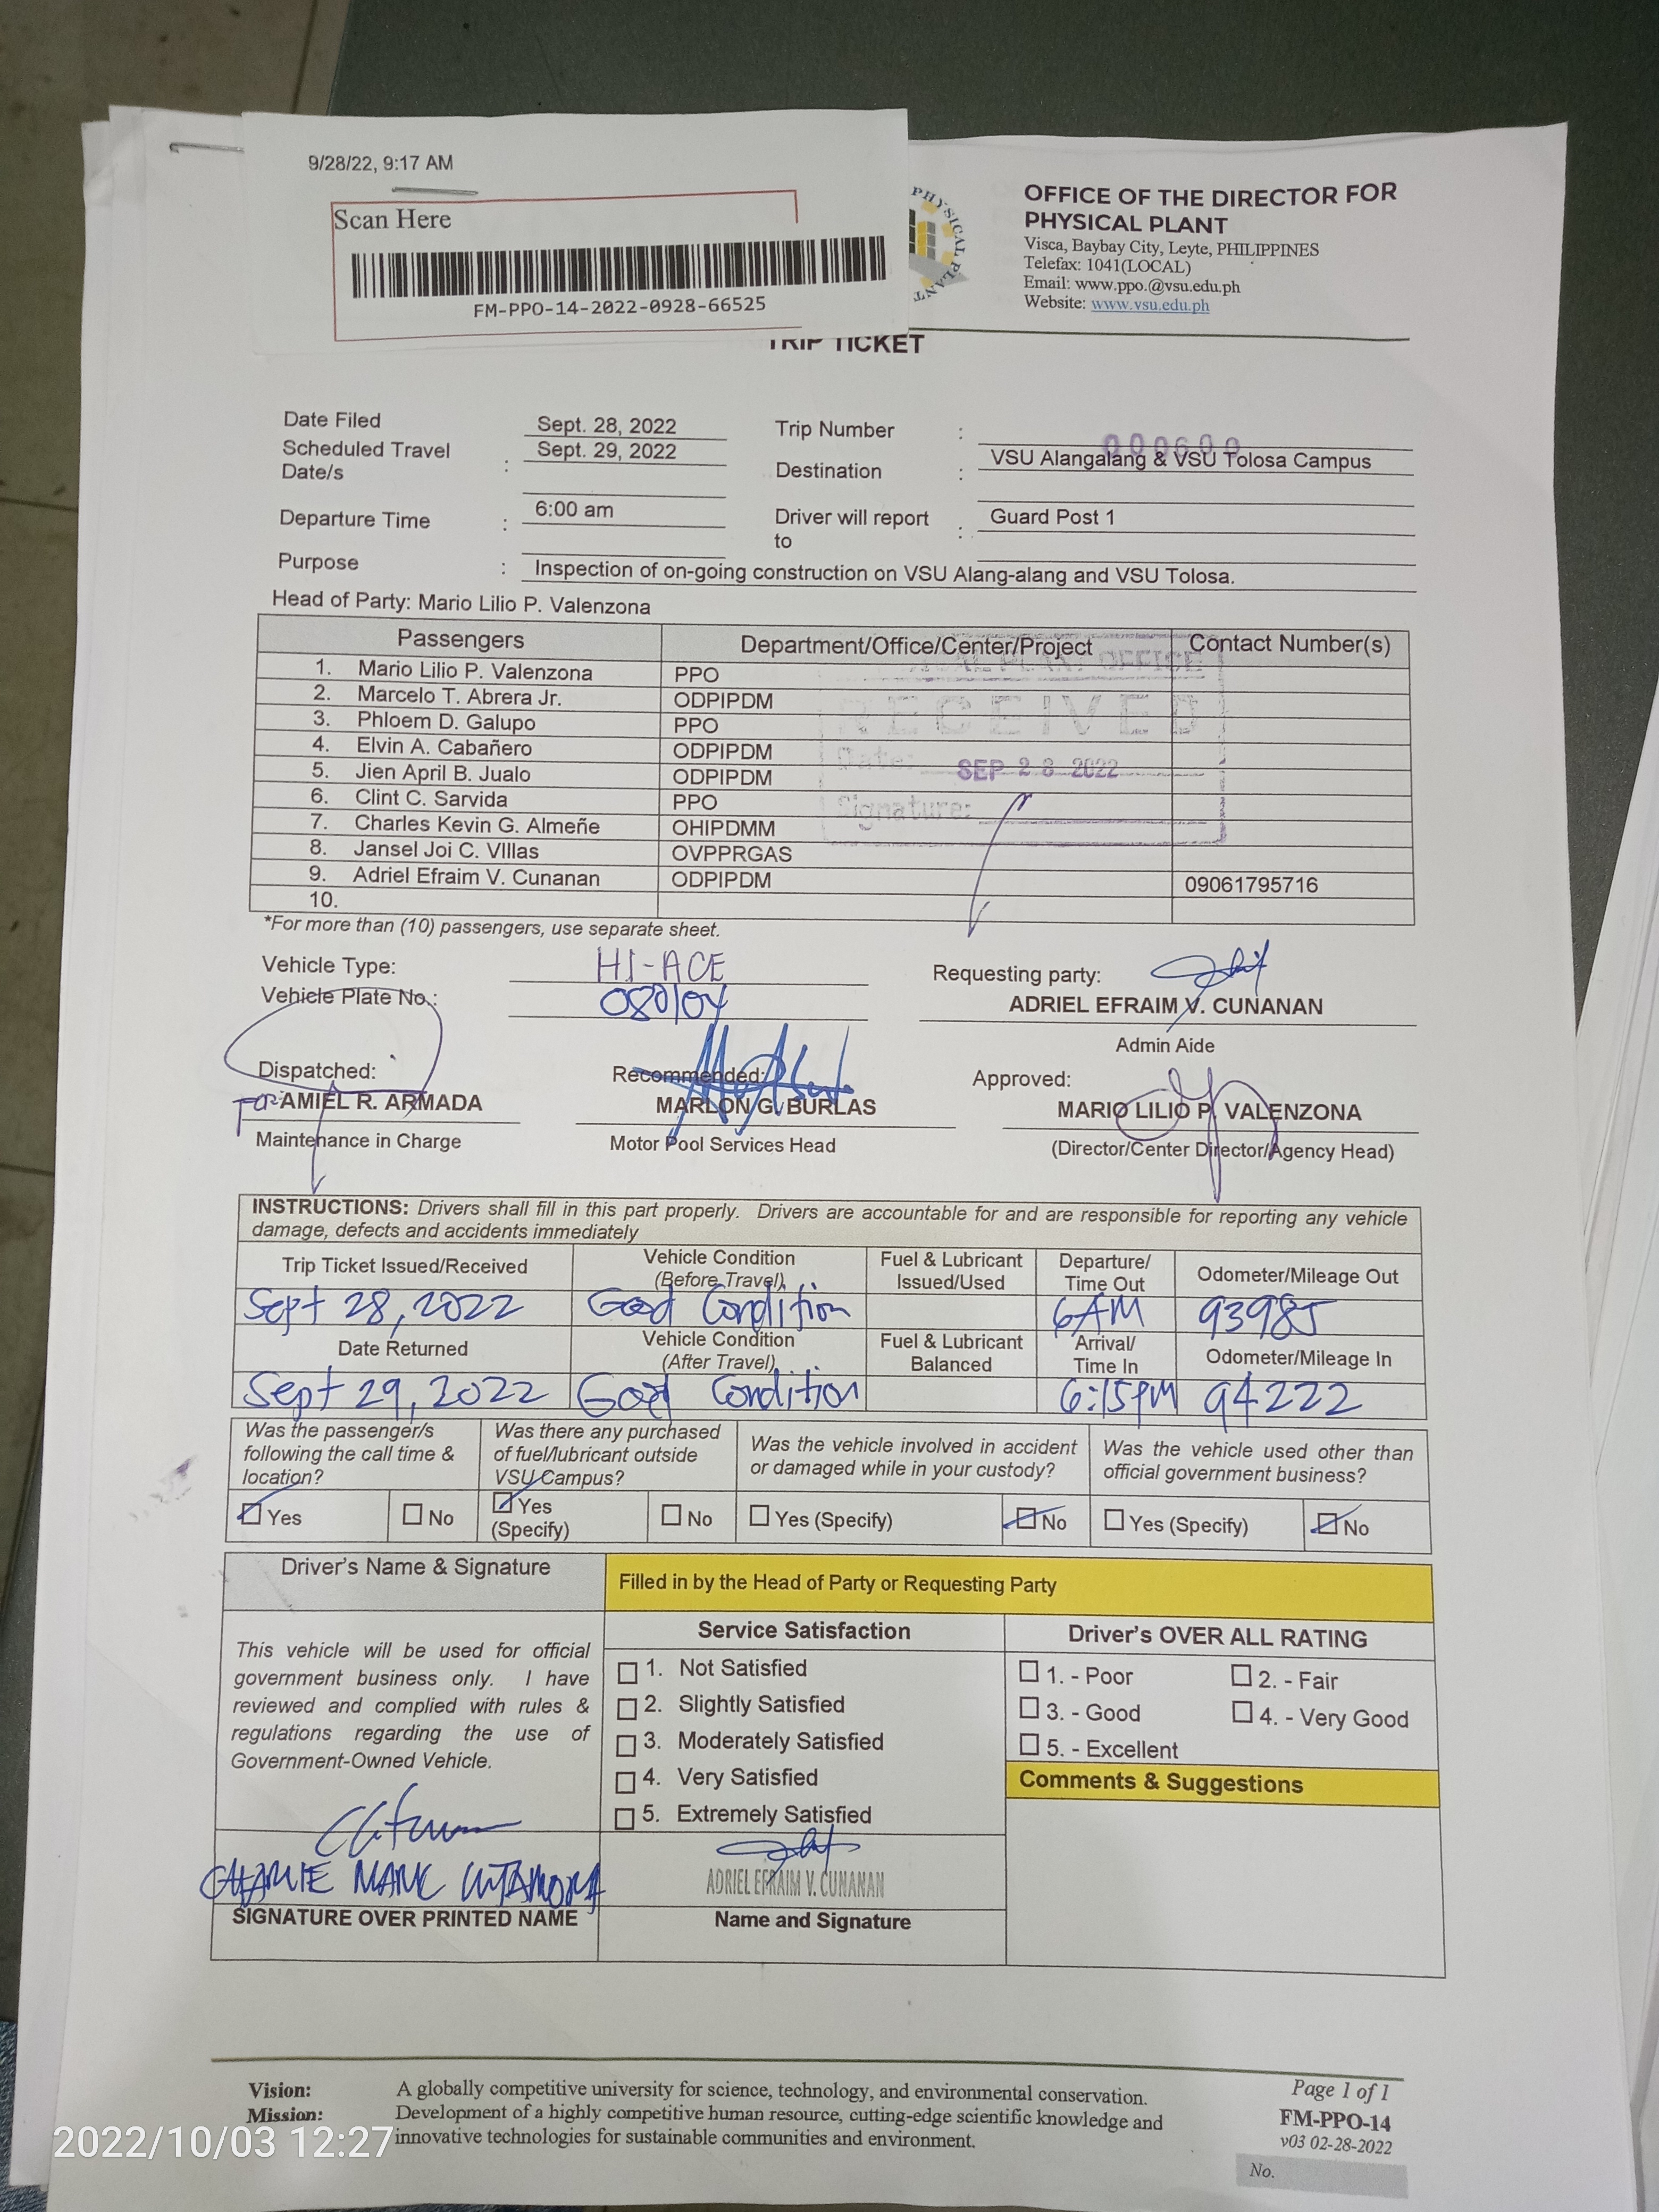 9/28/22, 9:17 AM
Scan Here
FM-PPO-14-2022-0928-66525
PHYSICAL PLANT
OFFICE OF THE DIRECTOR FOR
PHYSICAL PLANT
Visca, Baybay City, Leyte, PHILIPPINES
Telefax: 1041(LOCAL)
Email: www.ppo.@vsu.edu.ph
Website: www.vsu.edu.ph
TRIP TICKET
Date Filed Sept. 28, 2022 Trip Number : 000600
Scheduled Travel Date/s : Sept. 29, 2022 Destination : VSU Alangalang & VSU Tolosa Campus
Departure Time : 6:00 am Driver will report to : Guard Post 1
Purpose : Inspection of on-going construction on VSU Alang-alang and VSU Tolosa.
Head of Party: Mario Lilio P. Valenzona
Passengers Department/Office/Center/Project Contact Number(s)
1. Mario Lilio P. Valenzona PPO
2. Marcelo T. Abrera Jr. ODPIPDM
3. Phloem D. Galupo PPO
4. Elvin A. Cabañero ODPIPDM
5. Jien April B. Jualo ODPIPDM
6. Clint C. Sarvida PPO
7. Charles Kevin G. Almeñe OHIPDMM
8. Jansel Joi C. VIllas OVPPRGAS
9. Adriel Efraim V. Cunanan ODPIPDM 09061795716
10.
PLANT OFFICE
RECEIVED
Date: SEP 28 2022
Signature:
*For more than (10) passengers, use separate sheet.
Vehicle Type: HI-ACE
Vehicle Plate No.: 080104
Requesting party:
ADRIEL EFRAIM V. CUNANAN
Admin Aide
Dispatched: Recommended: Approved:
For: AMIEL R. ARMADA MARLON G. BURLAS MARIO LILIO P. VALENZONA
Maintenance in Charge Motor Pool Services Head (Director/Center Director/Agency Head)
INSTRUCTIONS: Drivers shall fill in this part properly. Drivers are accountable for and are responsible for reporting any vehicle
damage, defects and accidents immediately
Trip Ticket Issued/Received Vehicle Condition (Before Travel) Fuel & Lubricant Issued/Used Departure/ Time Out Odometer/Mileage Out
Sept 28, 2022 Good Condition 6AM 93985
Date Returned Vehicle Condition (After Travel) Fuel & Lubricant Balanced Arrival/ Time In Odometer/Mileage In
Sept 29, 2022 Good Condition 6:15PM 94222
Was the passenger/s following the call time & location? Was there any purchased of fuel/lubricant outside VSU Campus? Was the vehicle involved in accident or damaged while in your custody? Was the vehicle used other than official government business?
Yes No Yes (Specify) No Yes (Specify) No Yes (Specify) No
Driver's Name & Signature
Filled in by the Head of Party or Requesting Party
This vehicle will be used for official
government business only. I have
reviewed and complied with rules &
regulations regarding the use of
Government-Owned Vehicle.
CHARLIE MARK
SIGNATURE OVER PRINTED NAME
Service Satisfaction
1. Not Satisfied
2. Slightly Satisfied
3. Moderately Satisfied
4. Very Satisfied
5. Extremely Satisfied
ADRIEL EFRAIM V. CUNANAN
Name and Signature
Driver's OVER ALL RATING
1. - Poor 2. - Fair
3. - Good 4. - Very Good
5. - Excellent
Comments & Suggestions
Vision: A globally competitive university for science, technology, and environmental conservation.
Mission: Development of a highly competitive human resource, cutting-edge scientific knowledge and
innovative technologies for sustainable communities and environment.
Page 1 of 1
FM-PPO-14
v03 02-28-2022
No.
2022/10/03 12:27